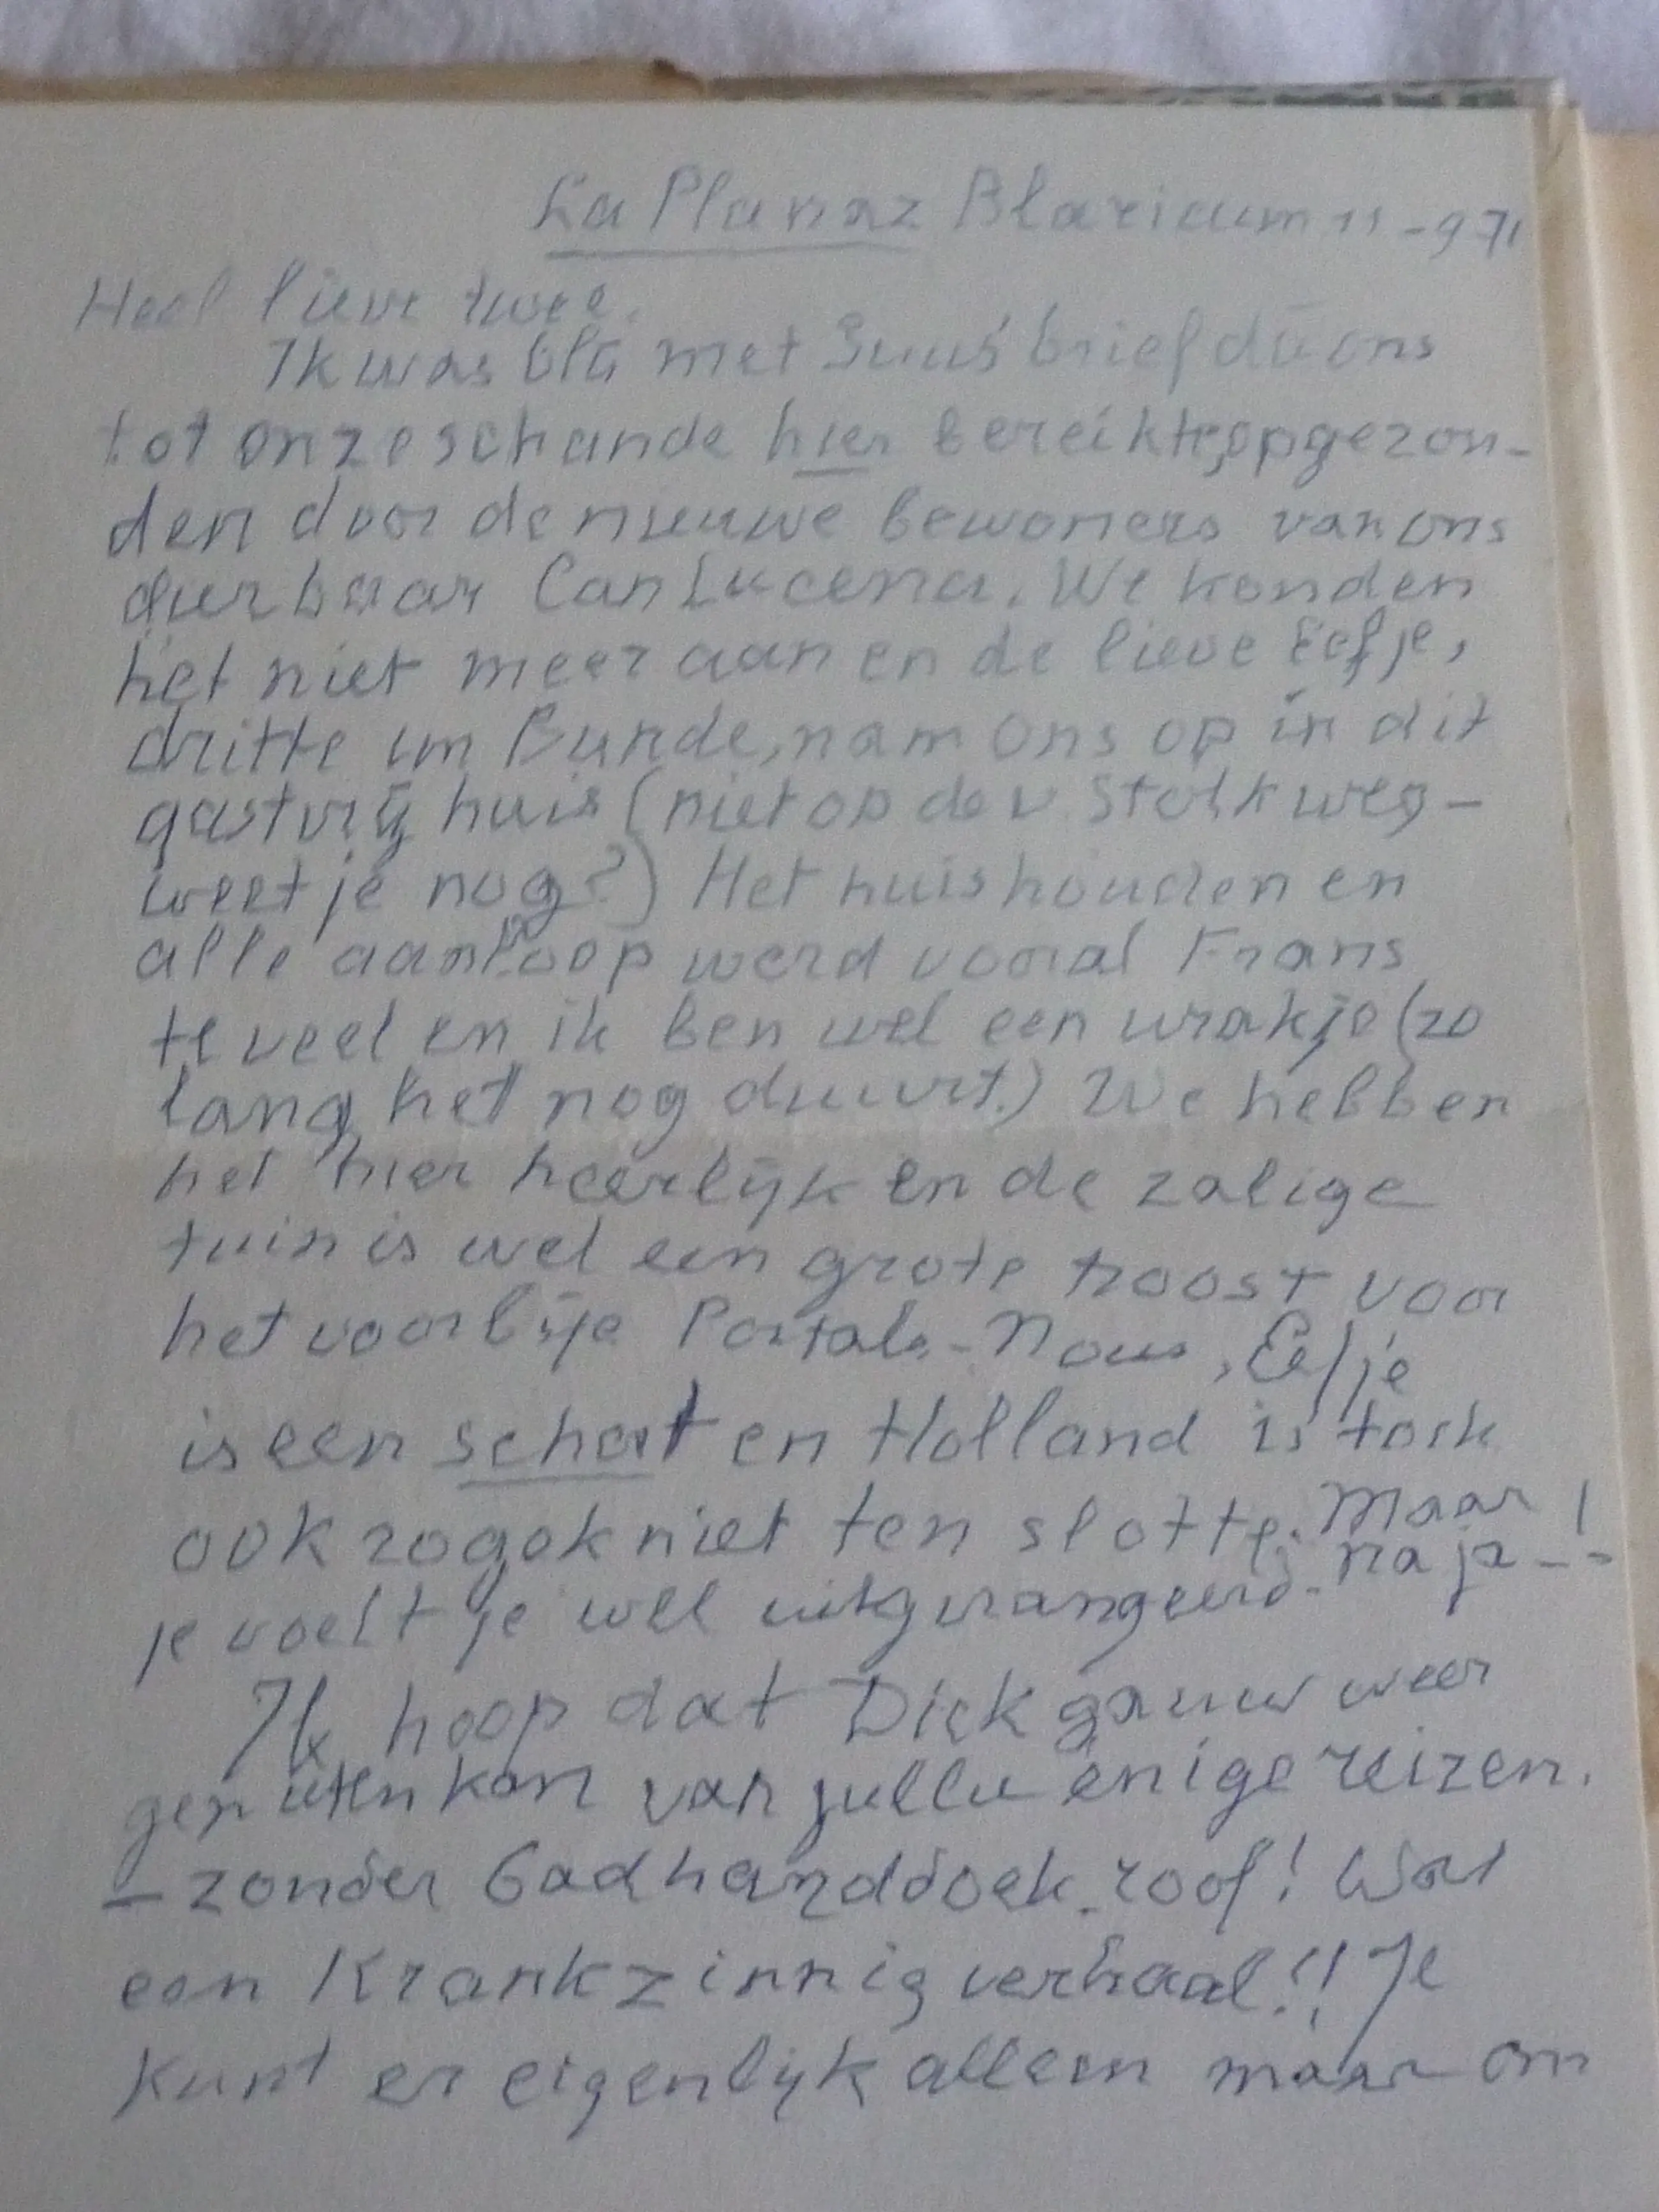 La Planaz Blaricum 11-971
Heel lieve twee.
Ik was blij met Suus' brief die ons
tot onze schande hier bereikte, opgezon-
den door de nieuwe bewoners van ons
dierbaar Can Lucena. We konden
het niet meer aan en de lieve Eefje,
dritte im Bunde, nam ons op in dit
gastvrij huis (niet op de v. Stolkweg-
weet je nog?) Het huishouden en
alle aanloop werd vooral Frans
te veel en ik ben wel een wrakje (zo
lang het nog duurt.) We hebben
het hier heerlijk en de zalige
tuin is wel een grote troost voor
het voorbije Portals-Nous, Eefje
is een schat en Holland is toch
ook zo gek niet ten slotte. Maar
na ja--!
je voelt je wel uitgerangeerd.
Ik hoop dat Dick gauw weer
genieten kan van jullie enige reizen.
- zonder badhanddoek-roof! Wat
een krankzinnig verhaal!! Je
kunt er eigenlijk alleen maar om